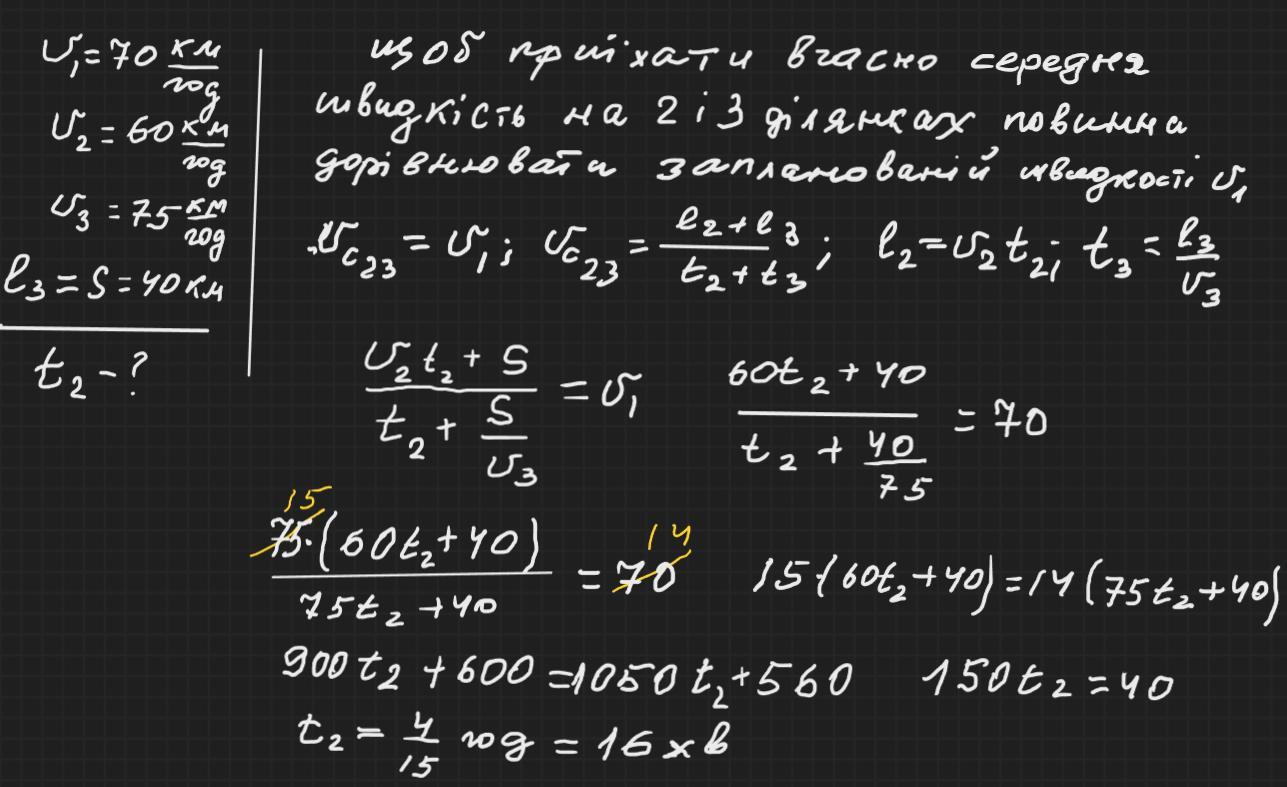 υ₁ = 70 км/год
υ₂ = 60 км/год
υ₃ = 75 км/год
l₃ = S = 40 км
t₂ - ?
щоб приїхати вчасно середня
швидкість на 2 і 3 ділянках повинна
дорівнювати запланованій швидкості υ₁
υc₂₃ = υ₁; υc₂₃ = (l₂ + l₃)/(t₂ + t₃); l₂ = υ₂t₂; t₃ = l₃/υ₃
(υ₂t₂ + S)/(t₂ + S/υ₃) = υ₁ (60t₂ + 40)/(t₂ + 40/75) = 70
15 14
75·(60t₂ + 40)/(75t₂ + 40) = 70 15·(60t₂ + 40) = 14(75t₂ + 40)
900t₂ + 600 = 1050t₂ + 560 150t₂ = 40
t₂ = 4/15 год = 16 хв